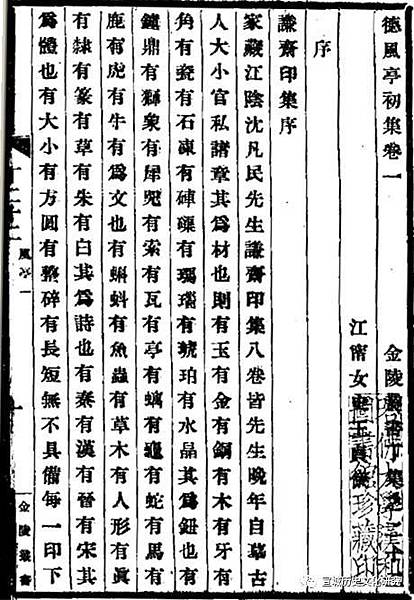 德風亭初集卷一
金陵叢書丁集之十九
江甯女史王貞儀
序
謙齋印集序
家藏江陰沈凡民先生謙齋印集八卷皆先生晚年自摹古
人大小官私諸章其爲材也則有玉有金有銅有木有牙有
角有瓷有石凍有硨磲有瑪瑙有琥珀有水晶其爲鈕也有
鐘鼎有獅象有犀兕有索有瓦有亭有螭有龜有蛇有馬有
鹿有虎有牛有爲文也有蝌蚪有魚蟲有草木有人形有眞
有隸有篆有草有朱有白其爲詩也有秦有漢有晉有宋其
爲體也有大小有方圓有整碎有長短無不具備每一印下
風亭一
金陵叢書
珍藏印
宣城历史文化研究